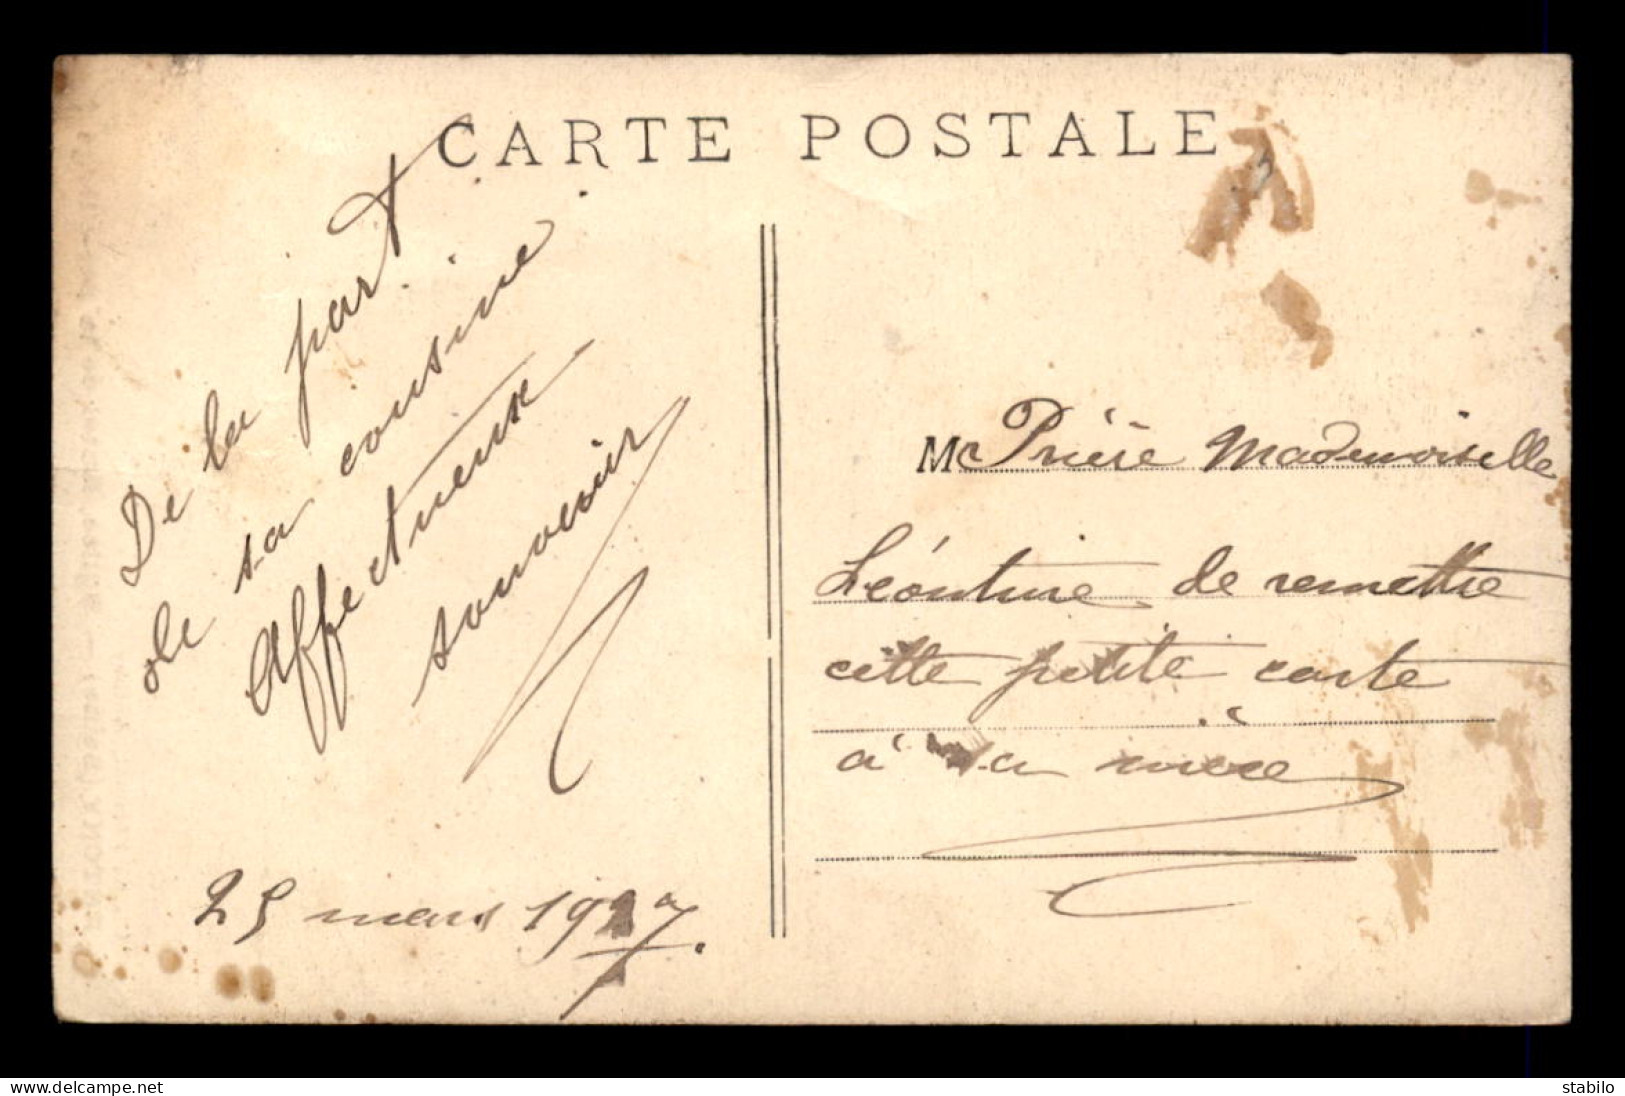 CARTE POSTALE
De la part
de sa cousine
Affectueuse
souvenir
25 mars 1917.
M Prière Mademoiselle
Léontine de remettre
cette petite carte
à sa mère
www.delcampe.net
stabilo